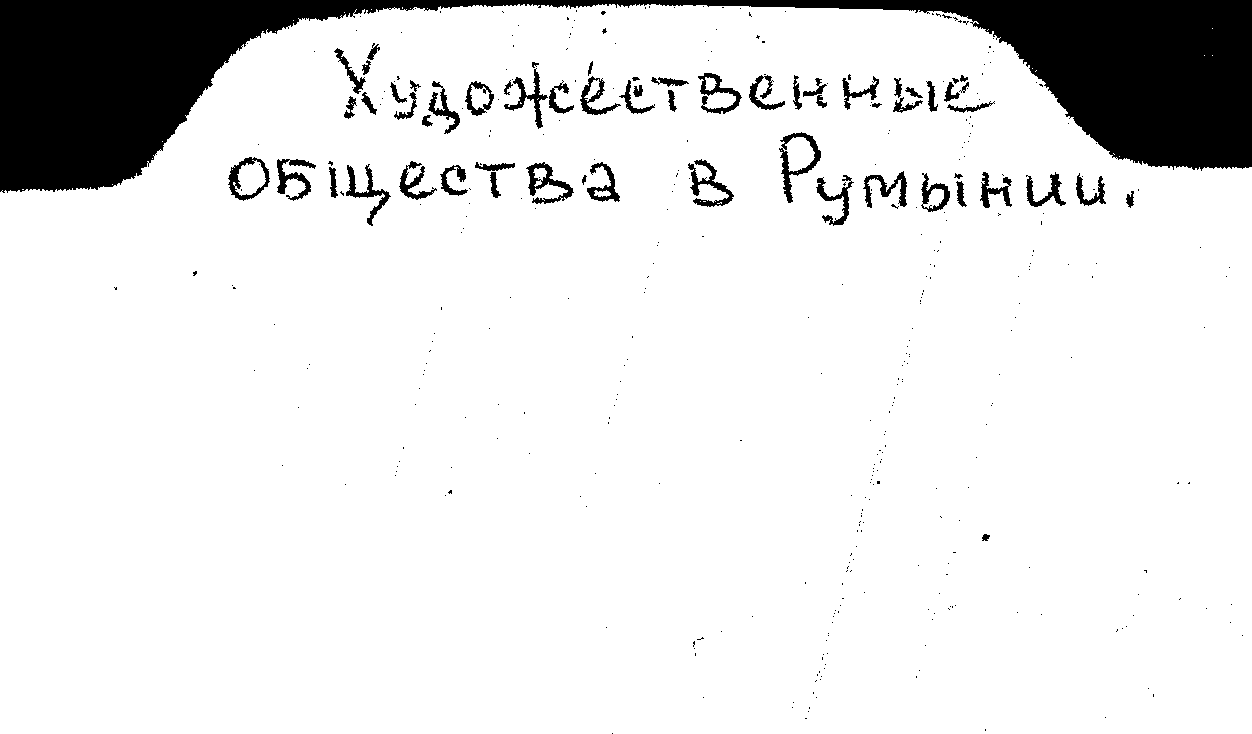 Художественные
общества в Румынии.